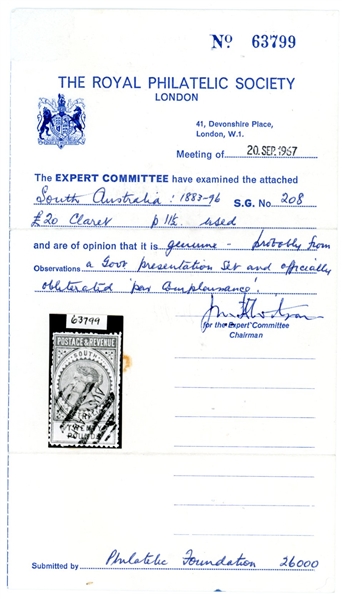 Nº 63799
THE ROYAL PHILATELIC SOCIETY
LONDON
41, Devonshire Place,
London, W.1.
Meeting of 20. SEP. 1967
The EXPERT COMMITTEE have examined the attached
South Australia : 1883-96 S.G. No 208
£20 Claret p 11½ used
and are of opinion that it is genuine - probably from
Observations a Govt presentation set and officially
obliterated 'par complaisance'.
for the Expert Committee
Chairman
63799
POSTAGE & REVENUE
SOUTH
TWENTY
POUNDS
Submitted by Philatelic Foundation 26000